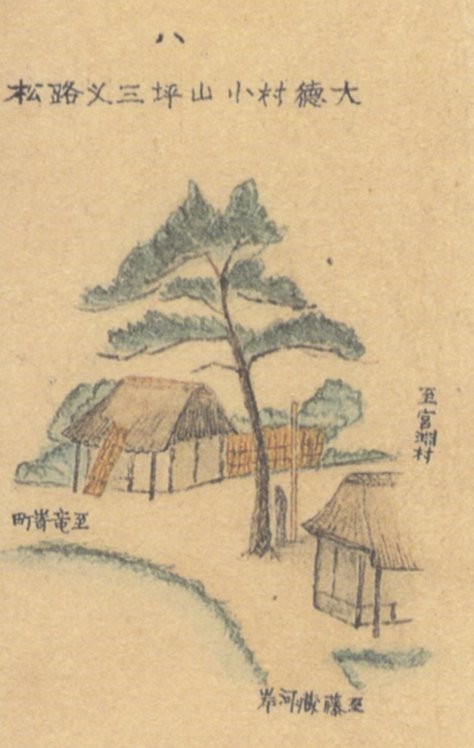 八
大徳村小山坪三义路松
至宮淵村
至竜嵜町
至藤蔵河岸